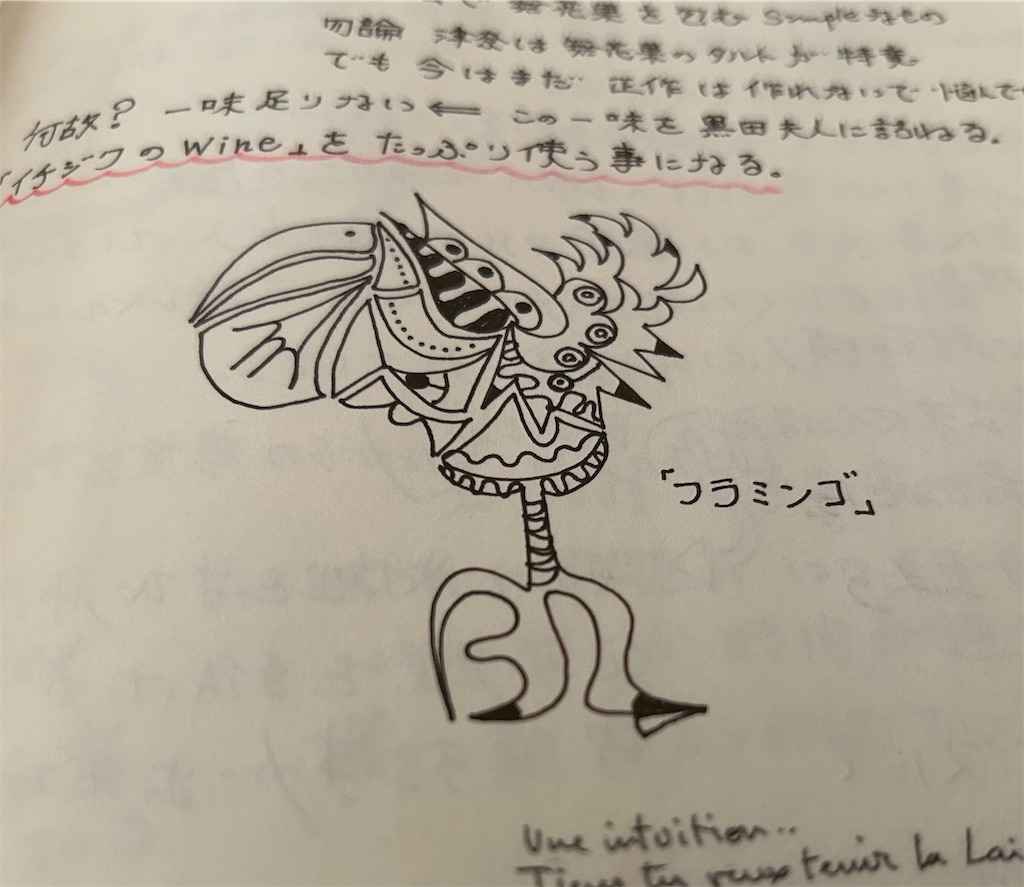 無花果を包む Simpleなもの
勿論 津奈は無花果のタルトが特意。
でも 今はまだ 正作は作れないで悩んで
何故? 一味足りない ⇐ この一味を 黒田夫人に訪ねる。
「イチジクのwine」を たっぷり使う事になる。
「フラミンゴ」
Une intuition..
Tiens tu veux tenir la Lai